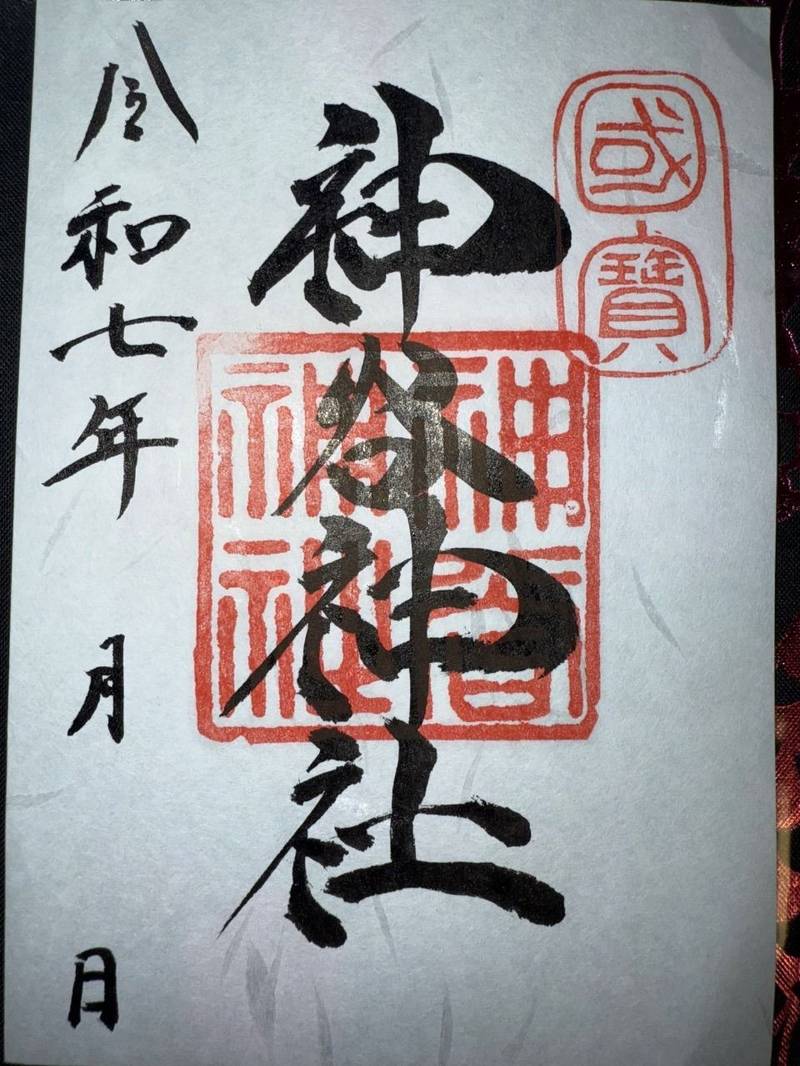 國寶
神谷神社
神谷神社
令和七年 月 日